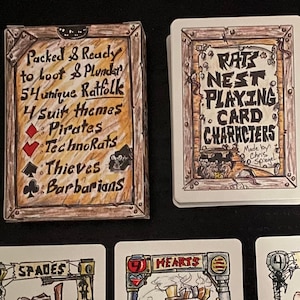 Packed & Ready
to Loot & Plunder
54 unique Ratfolk
4 suit themes
Pirates
TechnoRats
Thieves
Barbarians
RATS
NEST
PLAYING
CARD
CHARACTERS
Made by
Chris
SPADES
HEARTS